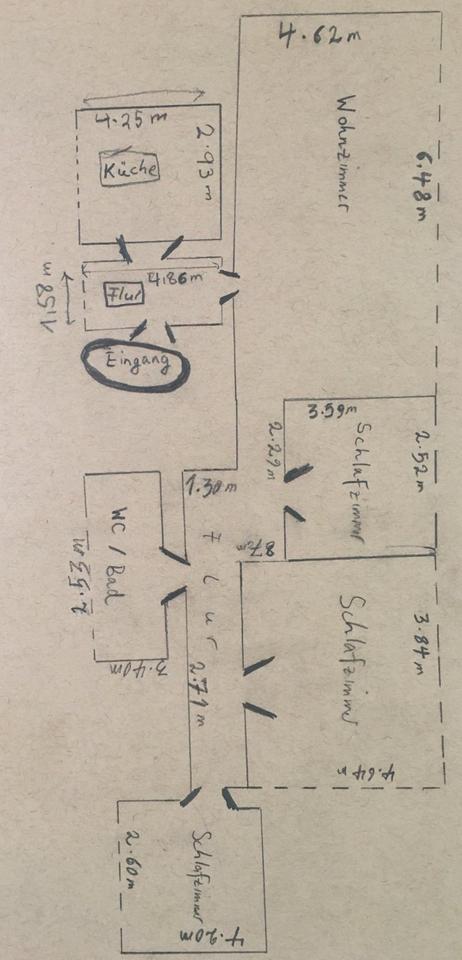 4.62m
Wohnzimmer
6.48m
4.25m
2.93m
Küche
4.86m
Flur
1.58m
Eingang
3.59m
2.29m
Schlafzimmer
2.52m
1.30m
87m
Flur
2.71m
WC / Bad
3.40m
Schlafzimmer
3.84m
4.64m
Schlafzimmer
2.60m
4.20m